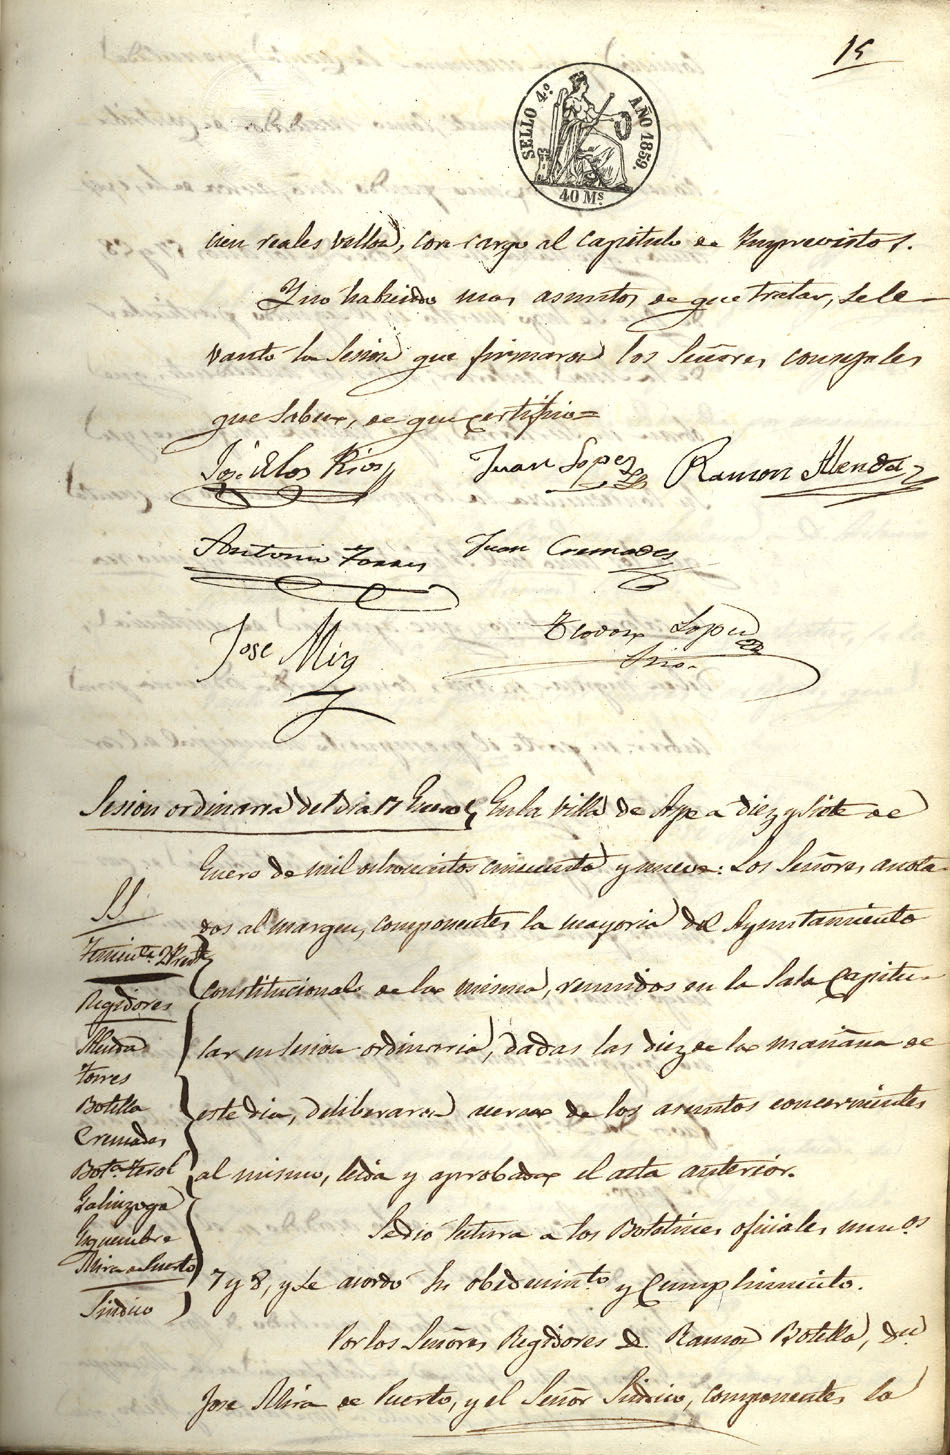 15
SELLO 4.º AÑO 1859.
40 Ms.
cien reales vellon, con cargo al capitulo de Imprevistos.
Y no habiendo mas asuntos de que tratar, se le-
vantó la sesion que firmaron los Señores concejales
que saben, de que certifico=
José de los Rios
Juan Lopez
Ramon Alenda
Antonio Torres
Juan Cremades
Jose Mira
Teodoro Lopez
Srio.
Sesion ordinaria del dia 17 Enero
En la Villa de Aspe a diez y siete de
Enero de mil ochocientos cincuenta y nueve: Los Señores anota-
dos al margen, componentes la mayoria del Ayuntamiento
constitucional de la misma, reunidos en la Sala Capitu-
lar en sesion ordinaria, dadas las diez de la mañana de
este dia, deliberaron acerca de los asuntos concernientes
al mismo, leida y aprobada el acta anterior.
Se dio lectura a los Boletines oficiales num.os
7 y 8, y se acordó su obedecim.to y cumplimiento.
Por los Señores Regidores D. Ramon Botella, Dn
Jose Mira de Puerto, y el Señor Sindico, componentes la
SS
Teniente
Regidores
Alenda
Torres
Botella
Cremades
Bot.a Erol
Galinzoga
Yquembre
Mira de Puerto
Sindico